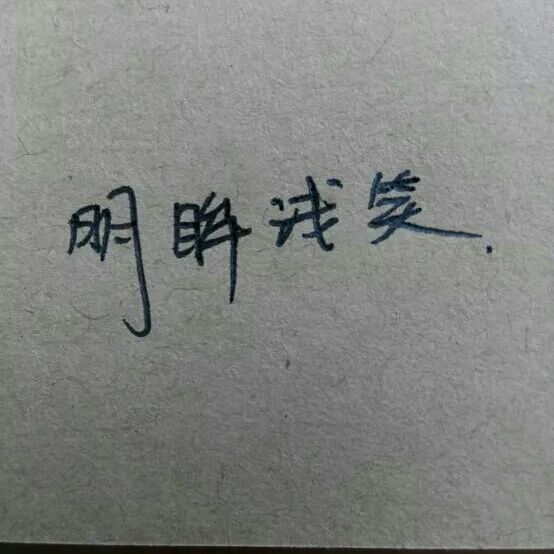 明眸浅笑.